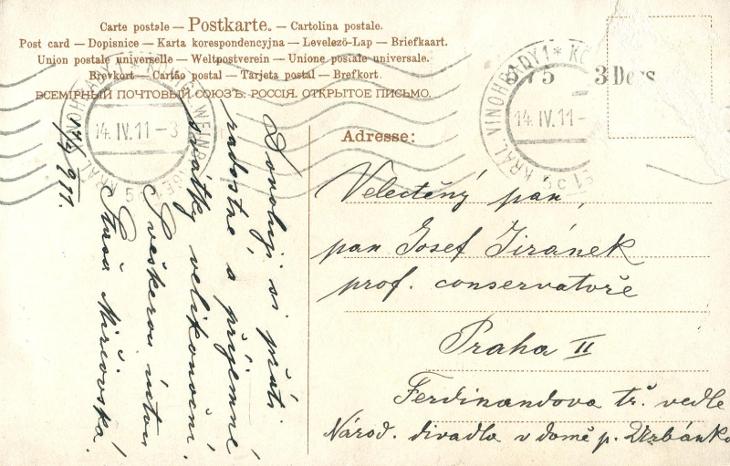 Carte postale — Postkarte. — Cartolina postale.
Post card — Dopisnice — Karta korespondencyjna — Levelező-Lap — Briefkaart.
Union postale universelle — Weltpostverein — Unione postale universale.
Brevkort — Cartão postal — Tarjeta postal — Brefkort.
ВСЕМІРНЫЙ ПОЧТОВЫЙ СОЮЗЪ. РОССІЯ. ОТКРЫТОЕ ПИСЬМО.
14.IV.11-3
KRÁL. VINOHRADY 1 *
14.IV.11-
75 3Dcrs
Dovoluji si přáti
radostné a příjemné
svátky velikonoční.
S veškerou úctou
911.
Adresse:
Velectěný pan,
pan Josef Jiránek
prof. conservatoře
Praha II
Ferdinandova tř. vedle
Národ. divadla v domě p. Urbánka